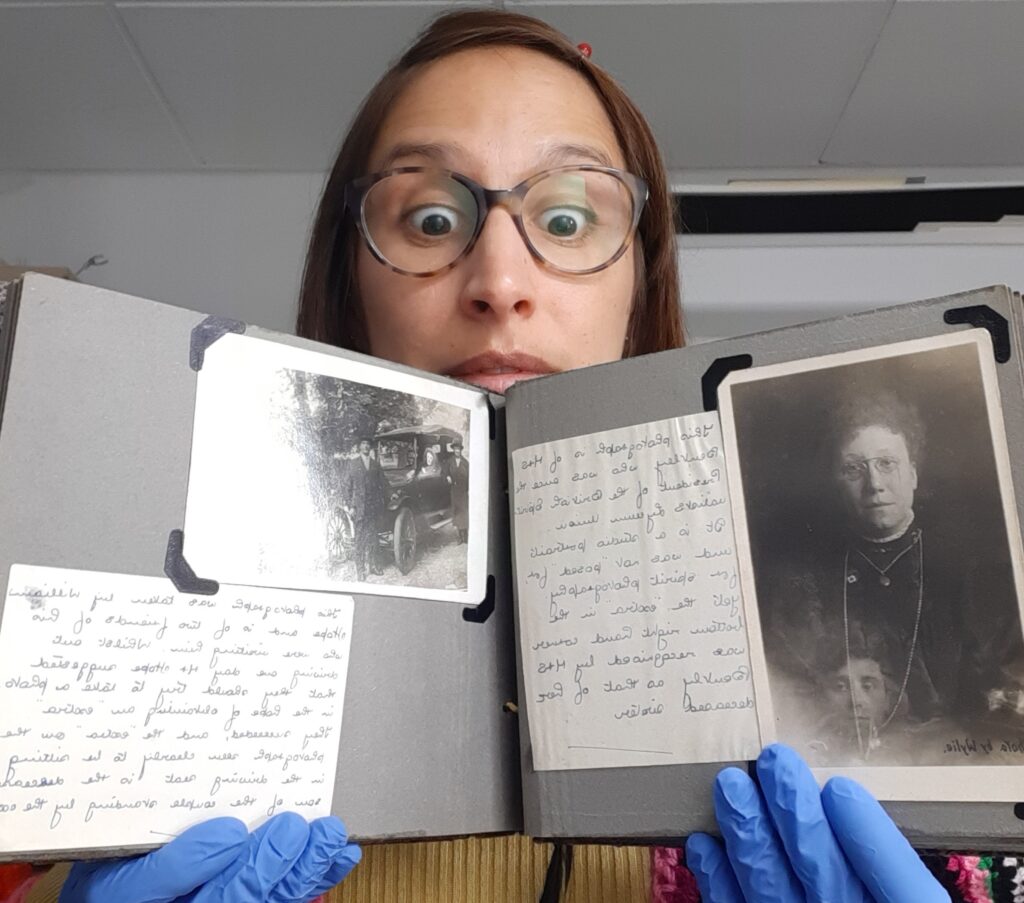 This photograph was taken by William
Hope and is of two friends of his
who were visiting him. Whilst out
driving one day Mr Hope suggested
that they should try to take a photo
in the hope of obtaining an "extra"
They succeeded, and the "extra" on the
photograph seen clearly to be sitting
in the driving seat is the deceased
son of the couple standing by the
This photograph is of Mrs
Bentley who was once the
President of the British Spirit-
ualists Lyceum Union.
It is a studio portrait
and was not "posed" for
for spirit photography.
Yet the "extra" in the
bottom right hand corner
was recognised by Mrs
Bentley as that of her
deceased sister
hoto by Wylie.